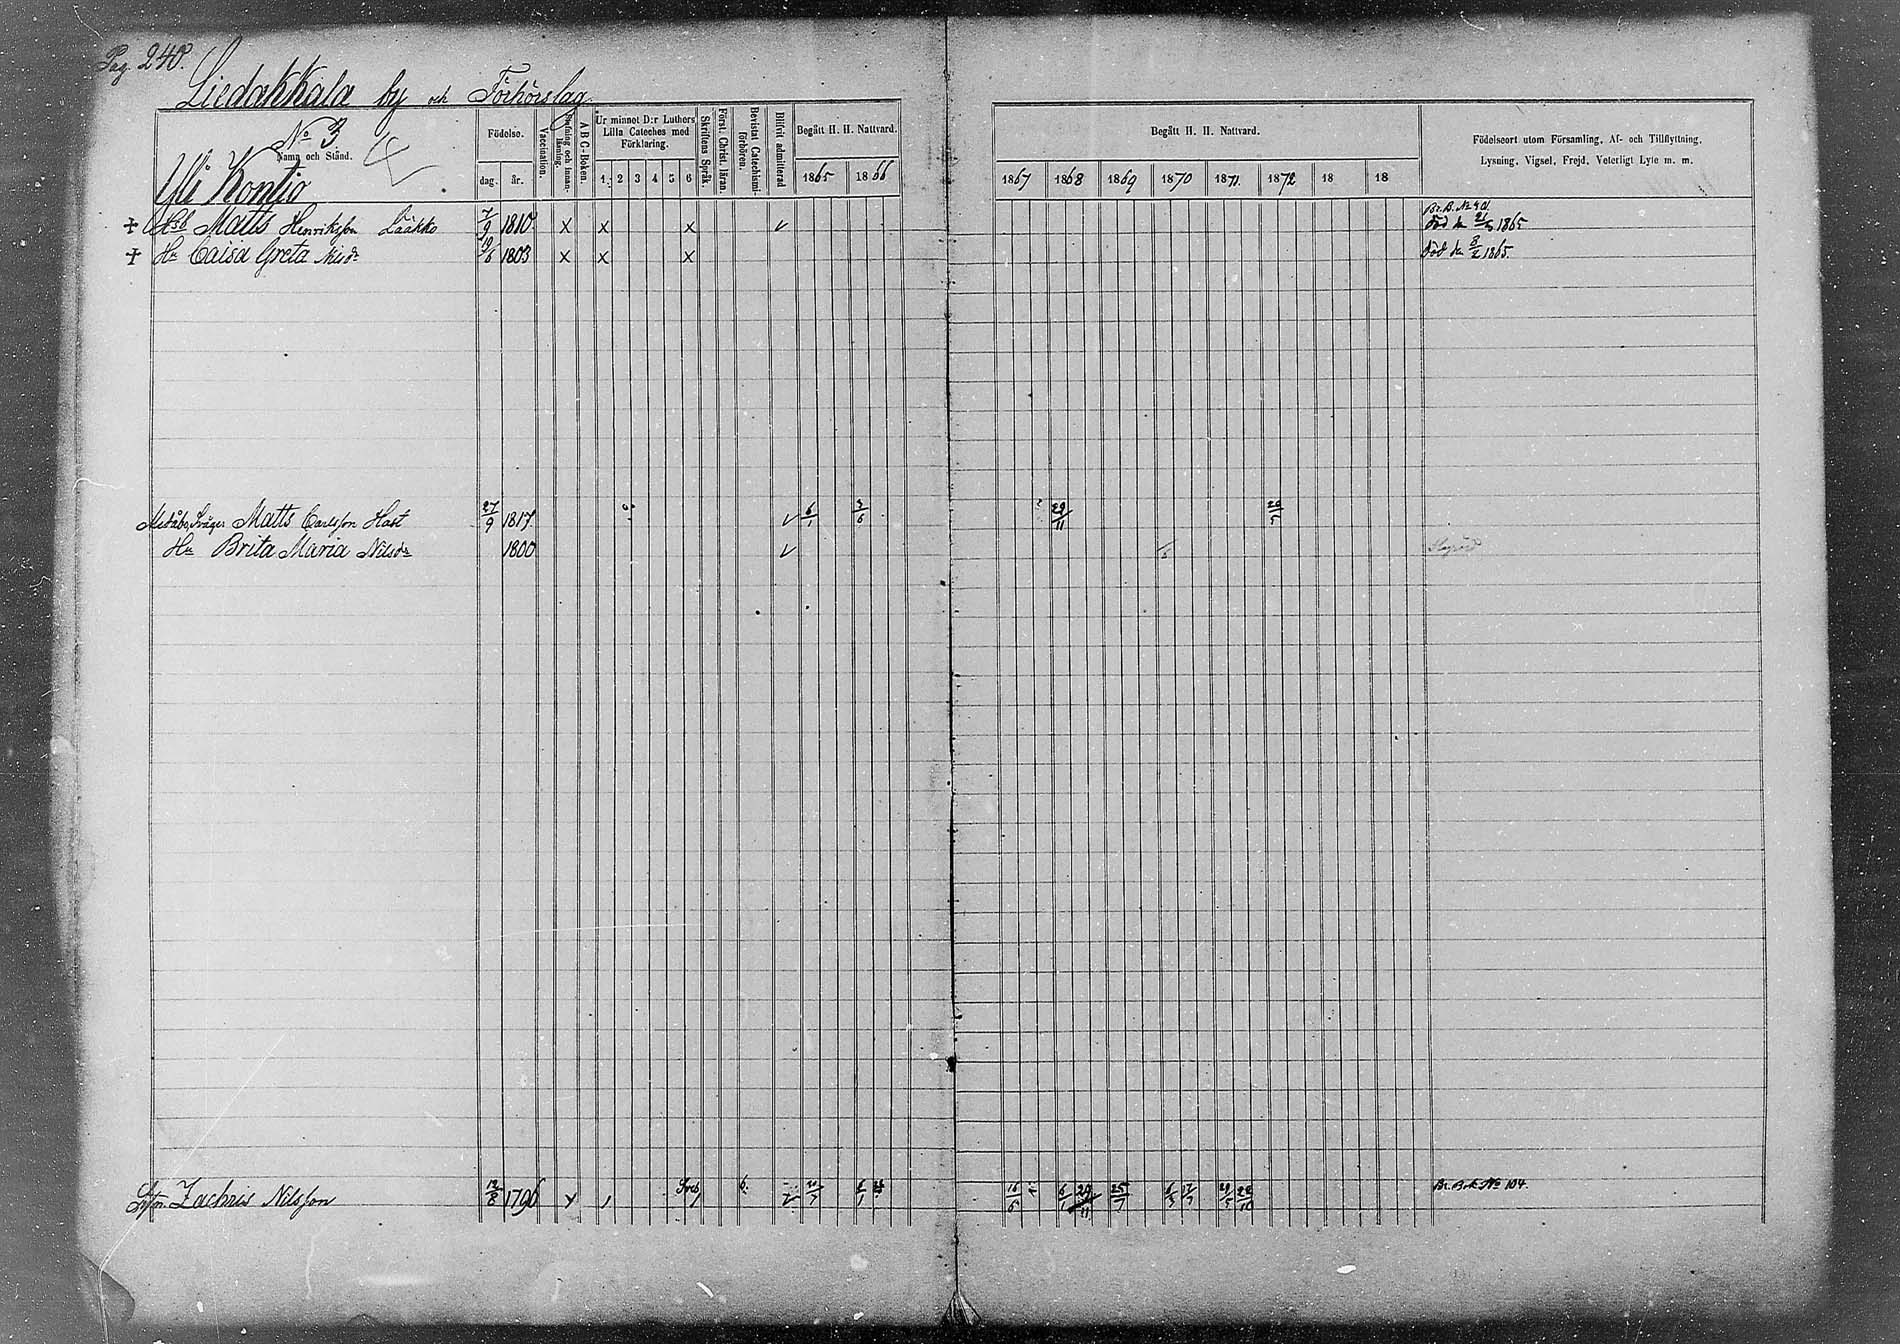 Pag. 240.
Liedakkala by och Förhörslag.
No 3
Namn och Stånd.
Yli Kontio
Födelse.
dag. år.
Vaccination.
A B C-Boken.
Ur minnet D:r Luthers Lilla Cateches med Förklaring.
1. 2 3 4 5 6
Skriftens Språk.
Först. Christ. läran.
Bevistat Catechismi-förhören.
Blifvit admitterad
Begått H. H. Nattvard.
1865 1866
Begått H. H. Nattvard.
1867 1868 1869 1870 1871. 1872 18 18
Födelseort utom Församling, Af- och Tillflyttning, Lysning, Vigsel, Frejd, Veterligt Lyte m. m.
Matts Henriksson Lääkkö 7/9 1810. x x x 1865
Hu Caisa Greta 19/6 1803 x x x Död den 8/2 1865.
Matts Carlsson Hast 27/9 1817. 6/1 29/11
Hu Brita Maria Nilsdr 1800
Zachris Nilsson 12/8 1796 Br. Bok No 104.